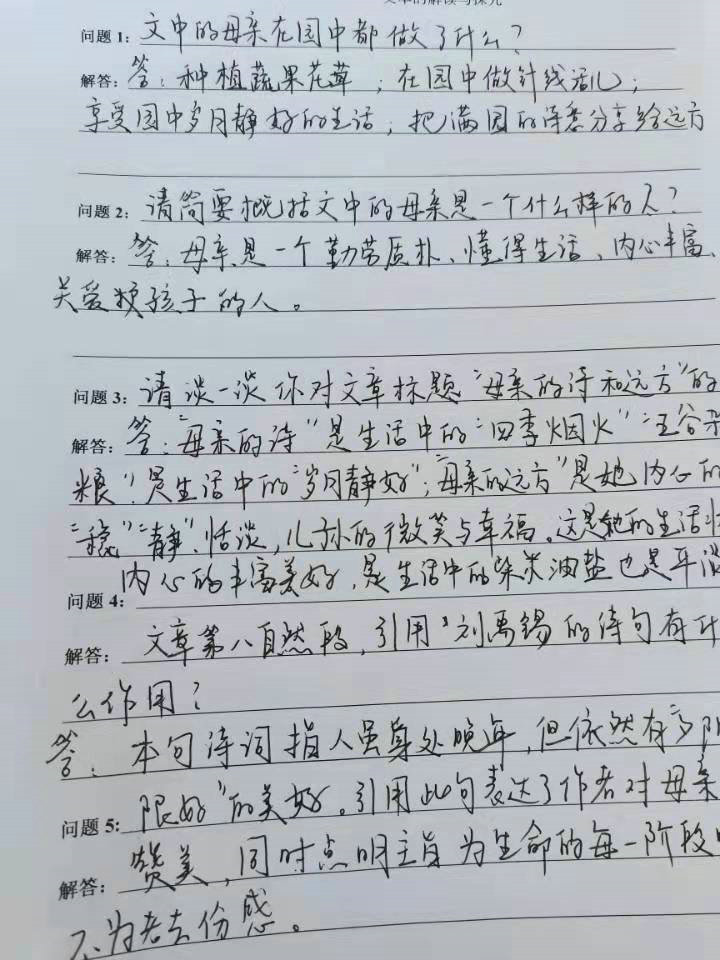 文章的解读与探究
问题 1: 文中的母亲在园中都做了什么？
解答: 答：种植蔬果花草；在园中做针线活儿；
享受园中岁月静好的生活；把满园的诗意分享给远方
问题 2: 请简要概括文中的母亲是一个什么样的人？
解答: 答：母亲是一个勤劳质朴、懂得生活、内心丰富、
关爱孩子的人。
问题 3: 请谈一谈你对文章标题“母亲的诗和远方”的
解答: 答：“母亲的诗”是生活中的“四季烟火”“五谷杂
粮”，是生活中的“岁月静好”；“母亲的远方”是她内心的
“稳”“静”、恬淡，儿孙的微笑与幸福。这是她的生活
内心的丰富美好，是生活中的柴米油盐也是平淡
问题 4:
解答: 文章第八自然段，引用刘禹锡的诗句有什
么作用？
答：本句诗词指人虽身处晚年，但依然有
问题 5: 限好”的美好。引用此句表达了作者对母亲
解答: 赞美，同时点明主旨为生命的每一阶段
不为老去伤感。